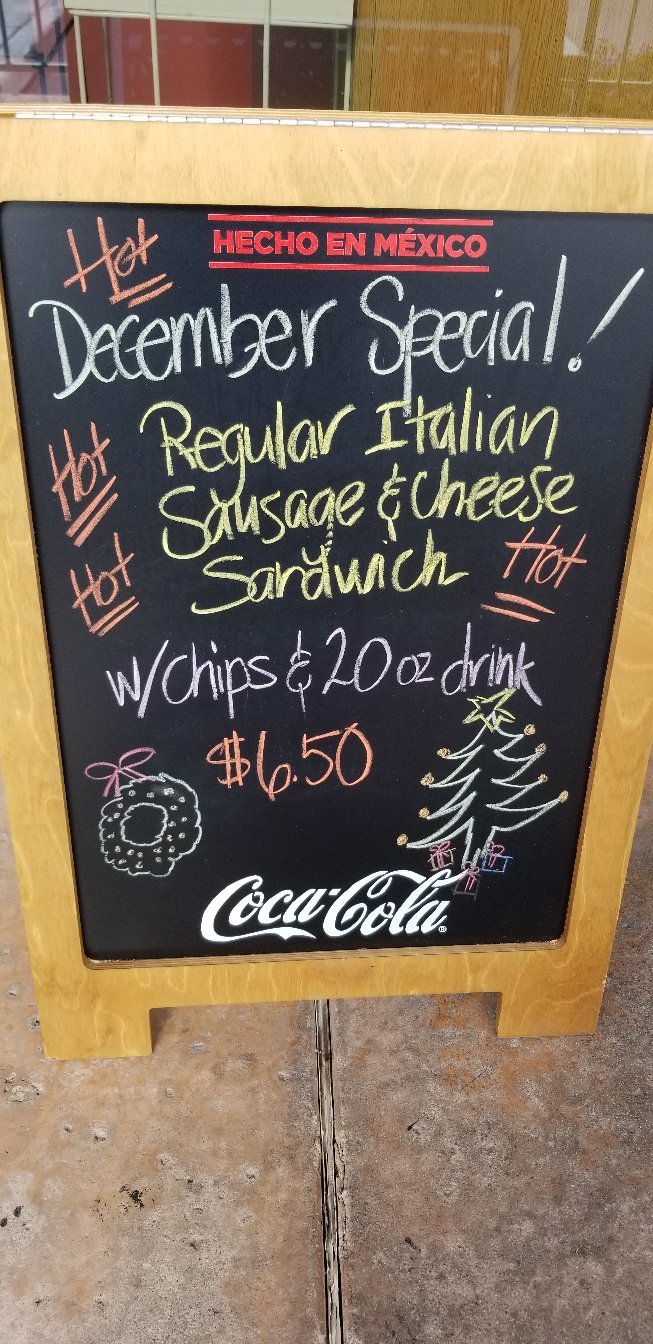 HECHO EN MÉXICO
Hot
December Special!
Hot
Regular Italian
Sausage & Cheese
Hot
Sandwich
Hot
w/chips & 20 oz drink
$6.50
Coca-Cola®